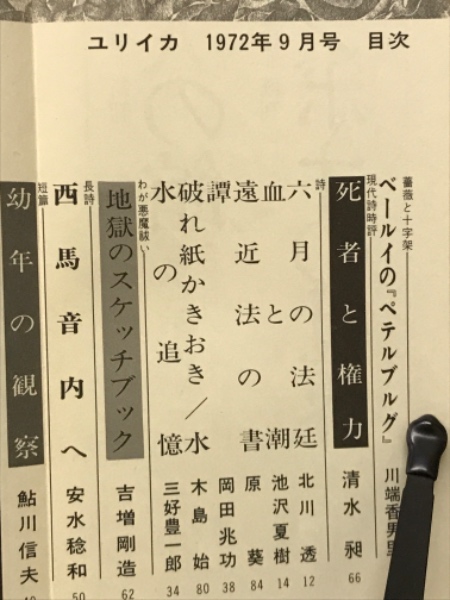 ユリイカ 1972年9月号 目次
薔薇と十字架
ベールイの『ペテルブルグ』 川端香男里
現代詩時評
死者と権力 清水昶 66
詩
六月の法廷 北川透 12
血と潮 池沢夏樹 14
遠近法の書 原葵 84
譚 岡田兆功 38
破れ紙かきおき/水 木島始 80
水の追憶 三好豊一郎 34
わが悪魔祓い
地獄のスケッチブック 吉増剛造 62
長詩
西馬音内へ 安水稔和 50
短篇
幼年の観察 鮎川信夫